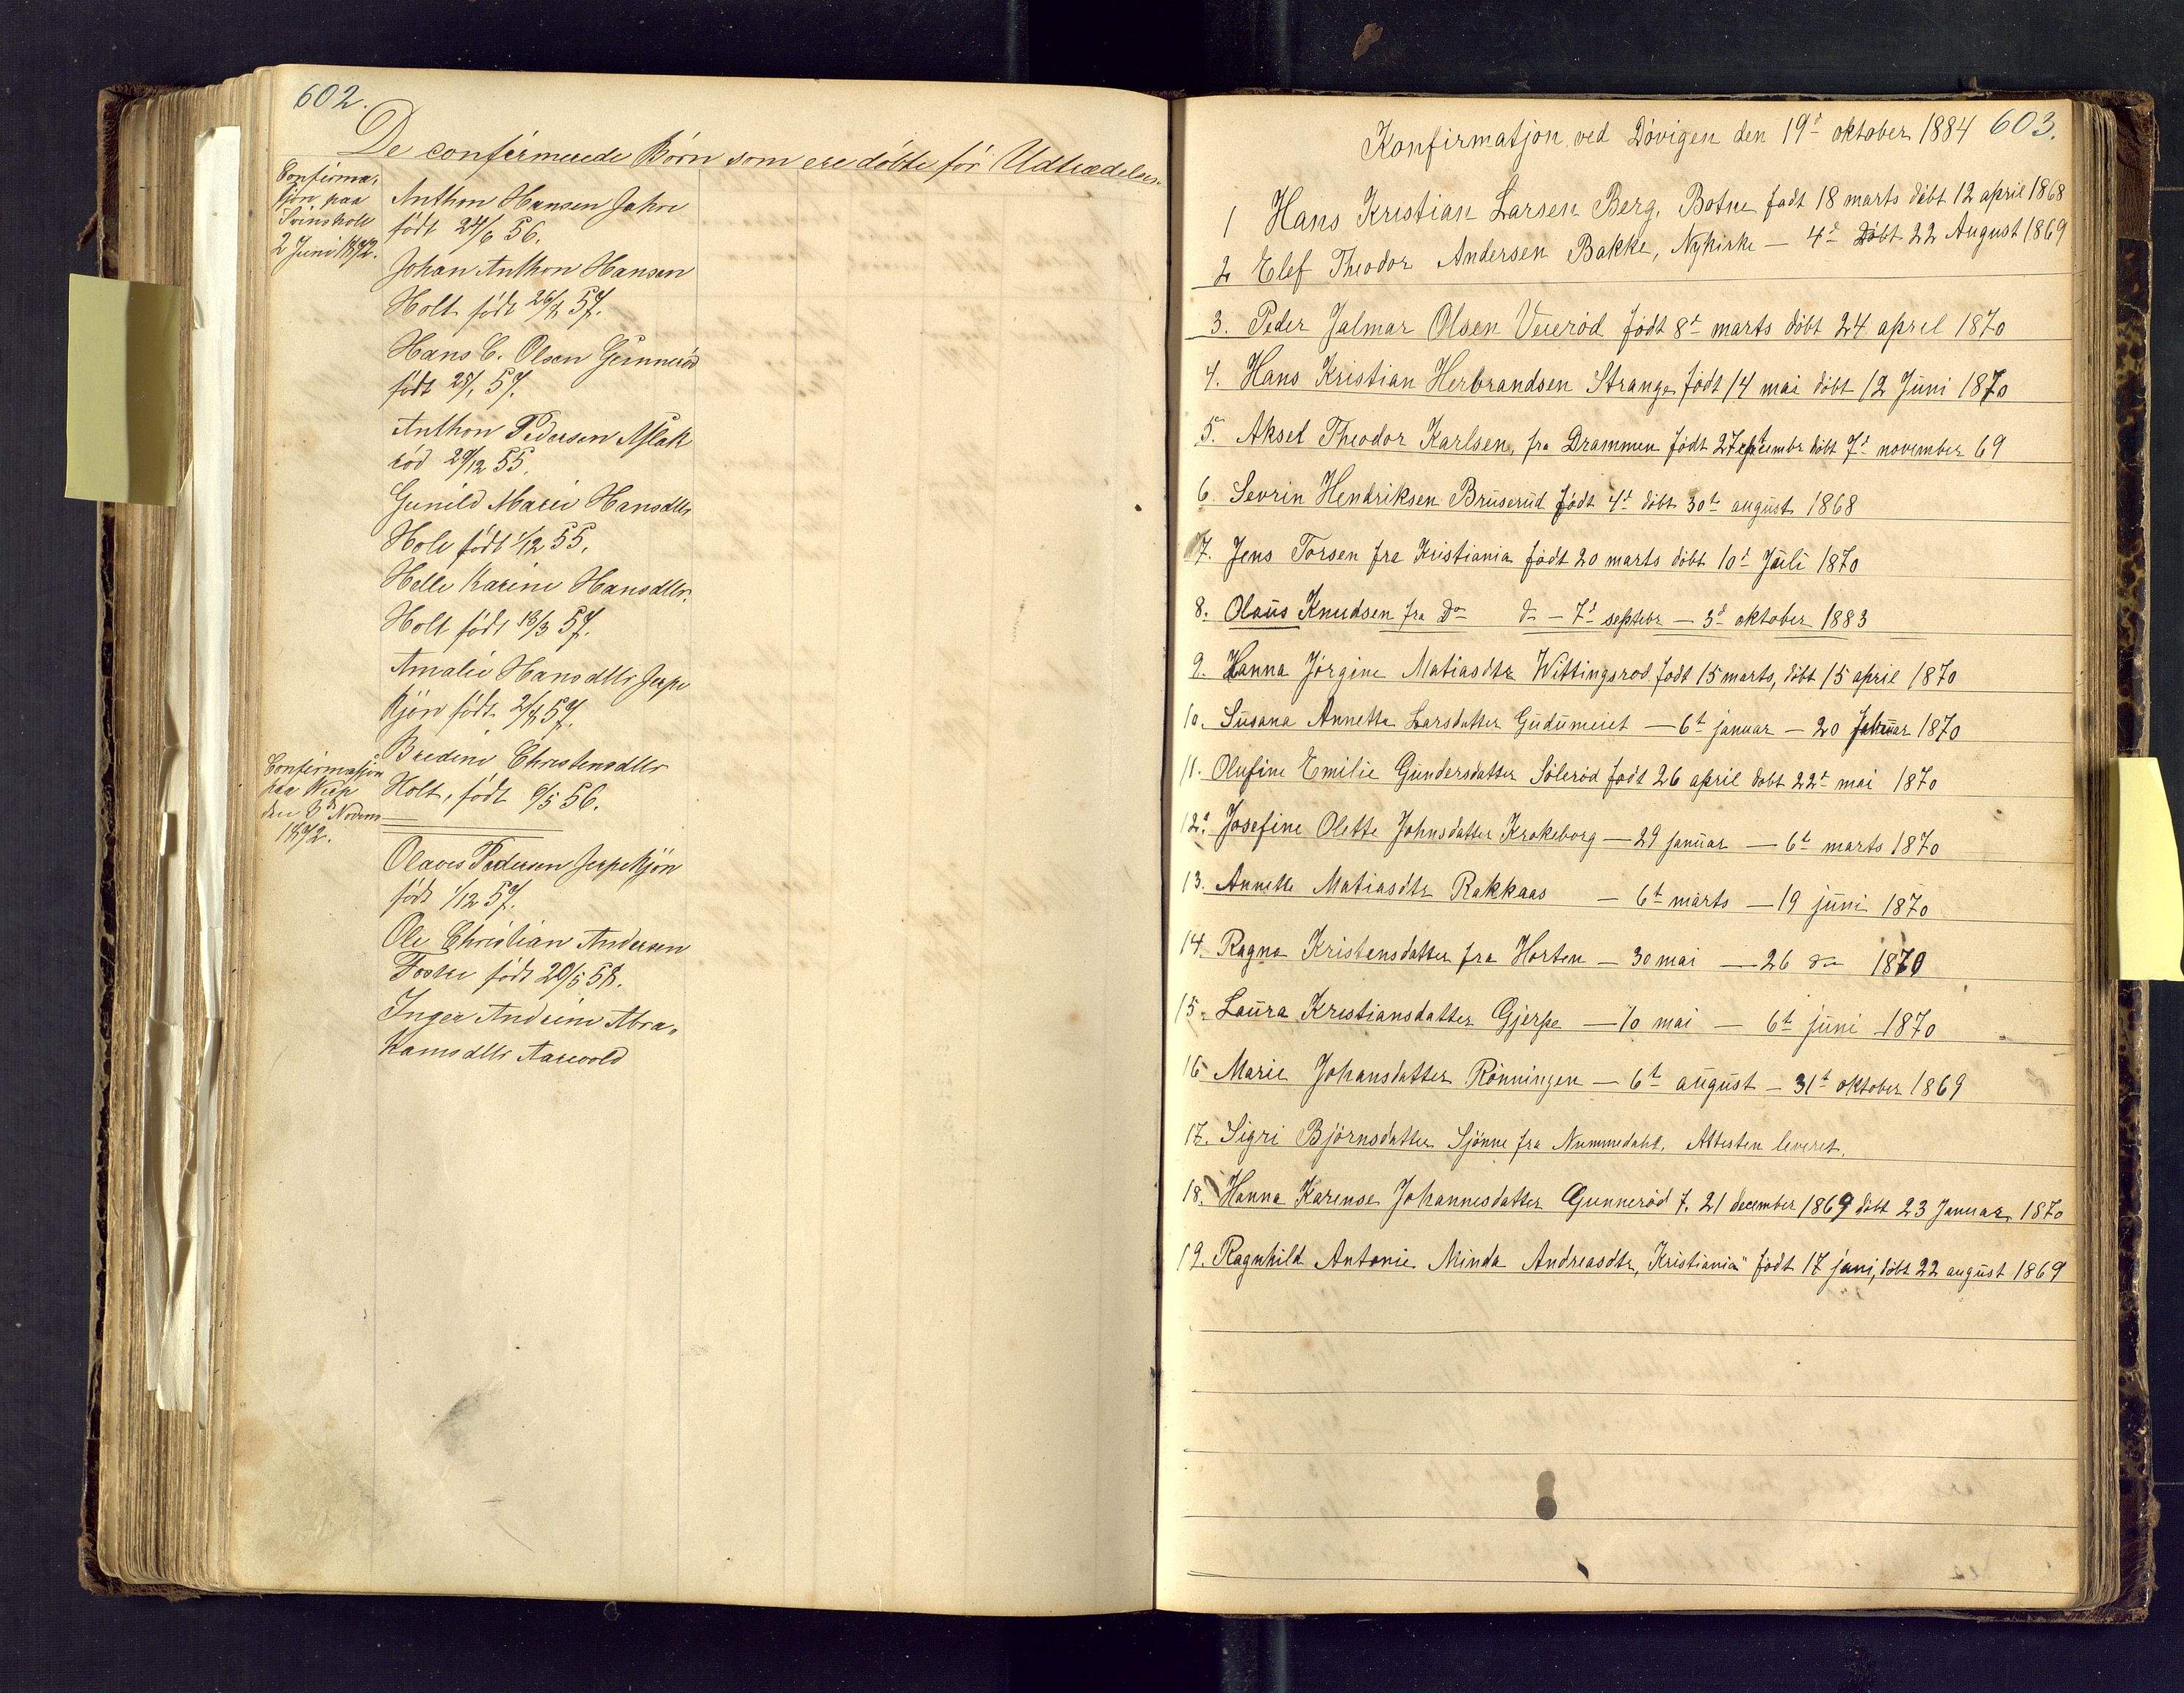 602.
De confirmerede Börn som ere döbte för Udtrædelsen
Confirma,
tjon paa
Svinsholt
2 Juni 1872.
Anthon Hansen Jahre
födt 24/6 56.
Johan Anthon Hansen
Holt födt 57.
Hans C. Olsen Gunneröd
födt 57.
Anthon Pedersen Aslak
röd 29/12 55.
Gunild Marie Hansdtr
Holt födt 1/12 55.
Helle Karine Hansdtr.
Holt födt 18/3 57.
Amalie Hansdtr Jerpe
kjön födt 57.
Bredine Christensdtr
Holt, födt 9/5 56.
Confirmatjon
paa Weep
den 3d Novem
1872.
Olaves Pedersen Jerpekjön
födt 1/12 57.
Ole Christian Andersen
Foske födt 20/5 58.
Inger Andrine Abra,
hamsdtr Aarevold
Konfirmatjon ved Dövigen den 19d oktober 1884 603.
1 Hans Kristian Larsen Berg, Botne födt 18 marts döbt 12 april 1868
2 Elef Theodor Andersen Bakke, Nykirke — 4d Döbt 22 August 1869
3. Peder Jalmar Olsen Veieröd födt 8d marts döbt 24 april 1870
4. Hans Kristian Herbrandsen Strange födt 14 mai döbt 12 Juni 1870
5. Aksel Theodor Karlsen, fra Drammen födt 27 döbt 7d november 69
6. Sevrin Hendriksen Bruserud födt 4d döbt 30t august 1868
7. Jens Torsen fra Kristiania födt 20 marts döbt 10d Juli 1870
8. Olaus Knudsen fra Do do — 7d septebr — 3d oktober 1883
9. Hanna Jörgine Matiasdtr Wittingsrod födt 15 marts, döbt 15 april 1870
10. Susana Annetta Larsdatter Gudumeiet — 6t januar — 20 Februar 1870
11. Olufine Emilie Gundersdatter Söleröd födt 26 april döbt 22d mai 1870
12. Josefine Olette Johnsdatter Krokeborg — 29 januar — 6t marts 1870
13. Annette Matiasdtr Rakkaas — 6t marts — 19 juni 1870
14. Ragna Kristensdatter fra Horten — 30 mai — 26 do 1870
15. Laura Kristiansdatter Gjerpe — 10 mai — 6t juni 1870
16 Marie Johansdatter Rönningen — 6t august — 31t oktober 1869
17. Sigri Björnsdatter Sjönne fra Nummedahl. Attesten leveret.
18. Hanna Karense Johannesdatter Gunneröd f. 21 december 1869 döbt 23 Januar 1870
19. Ragnhild Antonie Minda Andreasdtr, Kristiania" födt 17 juni, döbt 22 august 1869